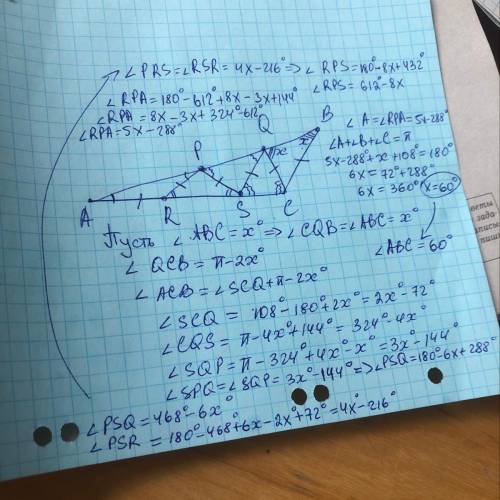 ∠PRS = ∠RSR = 4x-216° ⇒ ∠RPS = 180°-8x+432°
∠RPS = 612°-8x
∠RPA = 180°-612°+8x-3x+144°
∠RPA = 8x-3x+324°-612°
∠RPA = 5x-288°
∠A = ∠RPA = 5x-288°
∠A+∠B+∠C = π
5x-288°+x+108° = 180°
6x = 72°+288°
6x = 360° x=60°
∠ABC = 60°
A R P S Q C B x x
Пусть ∠ABC = x° ⇒ ∠CQB = ∠ABC = x°
∠QCB = π-2x°
∠ACB = ∠SCQ + π-2x°
∠SCQ = 108°-180°+2x° = 2x°-72°
∠CQS = π-4x°+144° = 324°-4x°
∠SQP = π-324°+4x°-x° = 3x°-144°
∠SPQ = ∠SQP = 3x°-144° ⇒ ∠PSQ = 180°-6x+288°
∠PSQ = 468°-6x°
∠PSR = 180°-468+6x-2x°+72° = 4x-216°